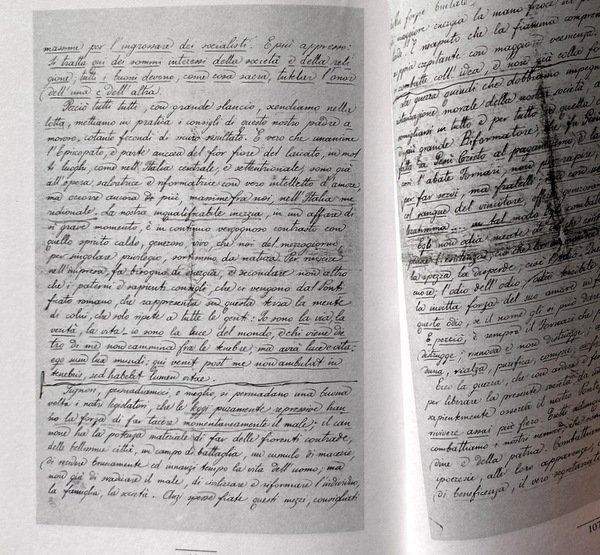 massime per l'ingrossare dei socialisti. E più appresso:
Si tratta qui dei sommi interessi della società e della reli-
gione; tutti i buoni devono, come cosa sacra, tutelar l'onor
dell'una e dell'altra.
Perciò tutti tutti, con grande slancio, scendiamo nella
lotta, mettiamo in pratica i consigli di questo nostro padre a-
moroso, cotanto fecondi di sicuro resultato. È vero che unanime
l'Episcopato, e parte ancora del fior fiore del laicato, in mol-
ti luoghi, come nell'Italia centrale, e settentrionale, sono già
all'opera salvatrice e riformatrice con vero intelletto d'amore,
ma occorre ancora di più, massime fra noi, nell'Italia me-
ridionale. La nostra inqualificabile inezia, in un affare di
sì grave momento, è in continuo vergognoso contrasto con
quello spirito caldo, generoso, vivo, che noi del mezzogiorno,
per singolare privilegio, sortimmo da natura. Per riuscire
nell'impresa, fa bisogno di energia, e secondare non altro
che i paterni e sapienti consigli, che ci vengono dal Ponti-
ficato romano, che rappresenta su questa terra la mente
di colui, che solo ripete a tutte le genti: Io sono la via, la
verità, la vita - io sono la luce del mondo, e chi viene die-
tro di me non cammina fra le tenebre, ma avrà luce di vita =
ego sum lux mundi: qui venit post me non ambulat in
tenebris, sed habebit lumen vitae.
Signori, persuadiamoci, e meglio si persuadano una buona
volta i nostri legislatori, che le leggi puramente repressive han-
no la forza di far tacere momentaneamente il male; il can-
none ha la potenza materiale di far delle fiorenti contrade,
delle bellissime città, un campo di battaglia, un cumulo di macerie,
di recidere bruscamente ed innanzi tempo la vita dell'uomo, ma
non già di sradicare il male, di civilizzare e riformare l'individuo,
la famiglia, la società. Anzi spesse fiate questi mezzi, consigliati
delle forze brutali
maggiore energia la mano feroce in
È risaputo che la fiamma compren-
pia capitante con maggior veemenza.
combatte coll'idea, e non già colla forza
La guerra quindi che dobbiamo impegn
staurazione morale della nostra società, a
somigliarsi in tutto e per tutto a quella c
più grande Riformatore
fatta da Gesù Cristo al paganesimo
con l'abate Fornari, non per rapire,
per far servi, ma fratelli:
al sangue del vincitore,
Egli non odia
la spezza la disperde,
cuore; l'odio dell'odio, odio terribile
la invitta forza del suo amore in
questo odio, se il nome gli si può dare
E perciò, è sempre il Fornari che
distrugge, rinnova e non distrugge,
duna, rialza, purifica, compie,
Ecco la guerra, che con ardor di
per liberare la presente società da
sapientemente osserva il nostro
rivivere assai più fiero. Tutti
combattiamo i nostri nemici,
dine e della patria. Combattiamo
ipocrisie, alle loro apparenze,
di beneficenza, il vero segretariato
107